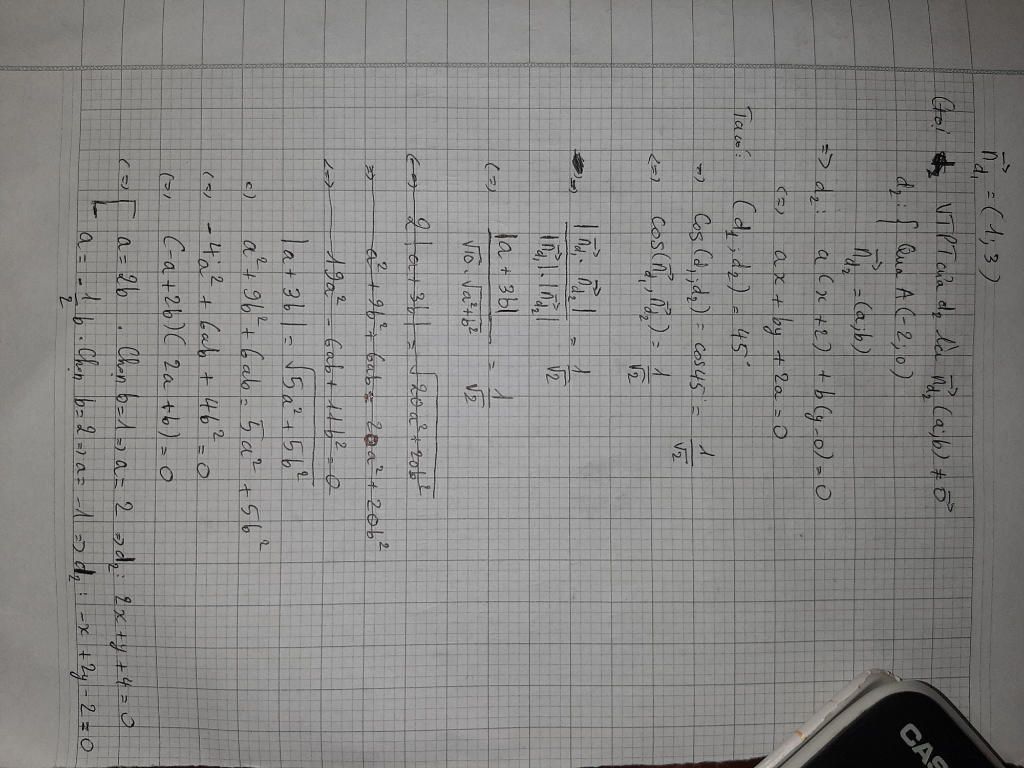 n⃗d₁ = (1, 3)
Gọi VTPT của d₂ là n⃗d₂ (a;b) ≠ 0⃗
d₂: { Qua A(-2;0)
n⃗d₂ = (a;b)
=> d₂: a(x+2) + b(y-0) = 0
(=) ax + by + 2a = 0
Ta có: (d₁;d₂) = 45°
=> cos(d₁,d₂) = cos45° = 1/√2
<=> cos(n⃗d₁, n⃗d₂) = 1/√2
<=> |n⃗d₁ . n⃗d₂| / |n⃗d₁|.|n⃗d₂| = 1/√2
(=) |a+3b| / √10.√a²+b² = 1/√2
(=) 2|a+3b| = √20a²+20b²
=> a² + 9b² + 6ab = 20a² + 20b²
(=) 19a² - 6ab + 11b² = 0
|a+3b| = √5a²+5b²
=) a² + 9b² + 6ab = 5a² + 5b²
(=) -4a² + 6ab + 4b² = 0
(=) (-a+2b)(2a+b) = 0
(=) [ a = 2b . Chọn b=1 => a = 2 => d₂: 2x+y+4=0
[ a = -1/2 b . Chọn b=2 => a = -1 => d₂: -x+2y-2=0
CAS